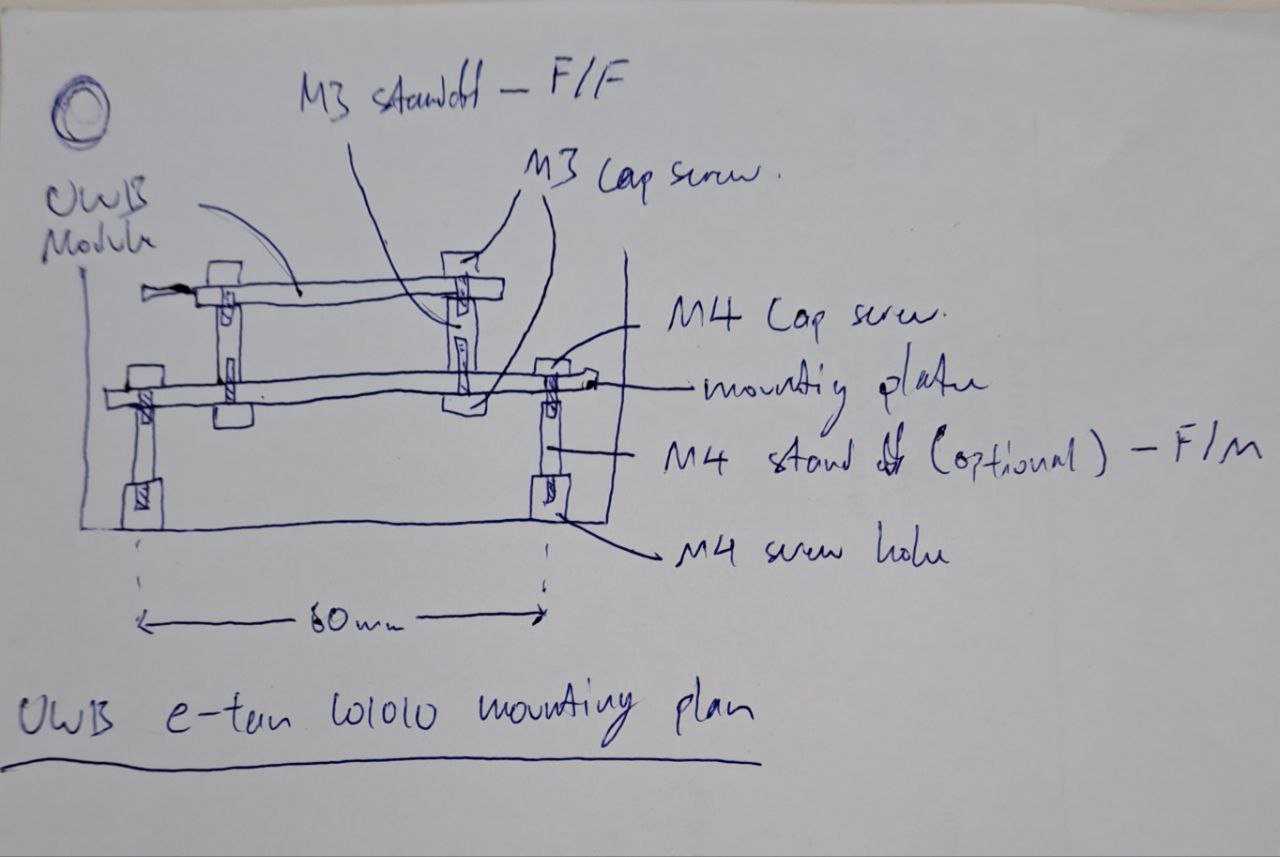 M3 standoff - F/F
M3 Cap screw.
UWB
Module
M4 Cap screw.
mounting plate
M4 stand off (optional) - F/M
M4 screw hole
60mm
UWB e-tan 101010 mounting plan